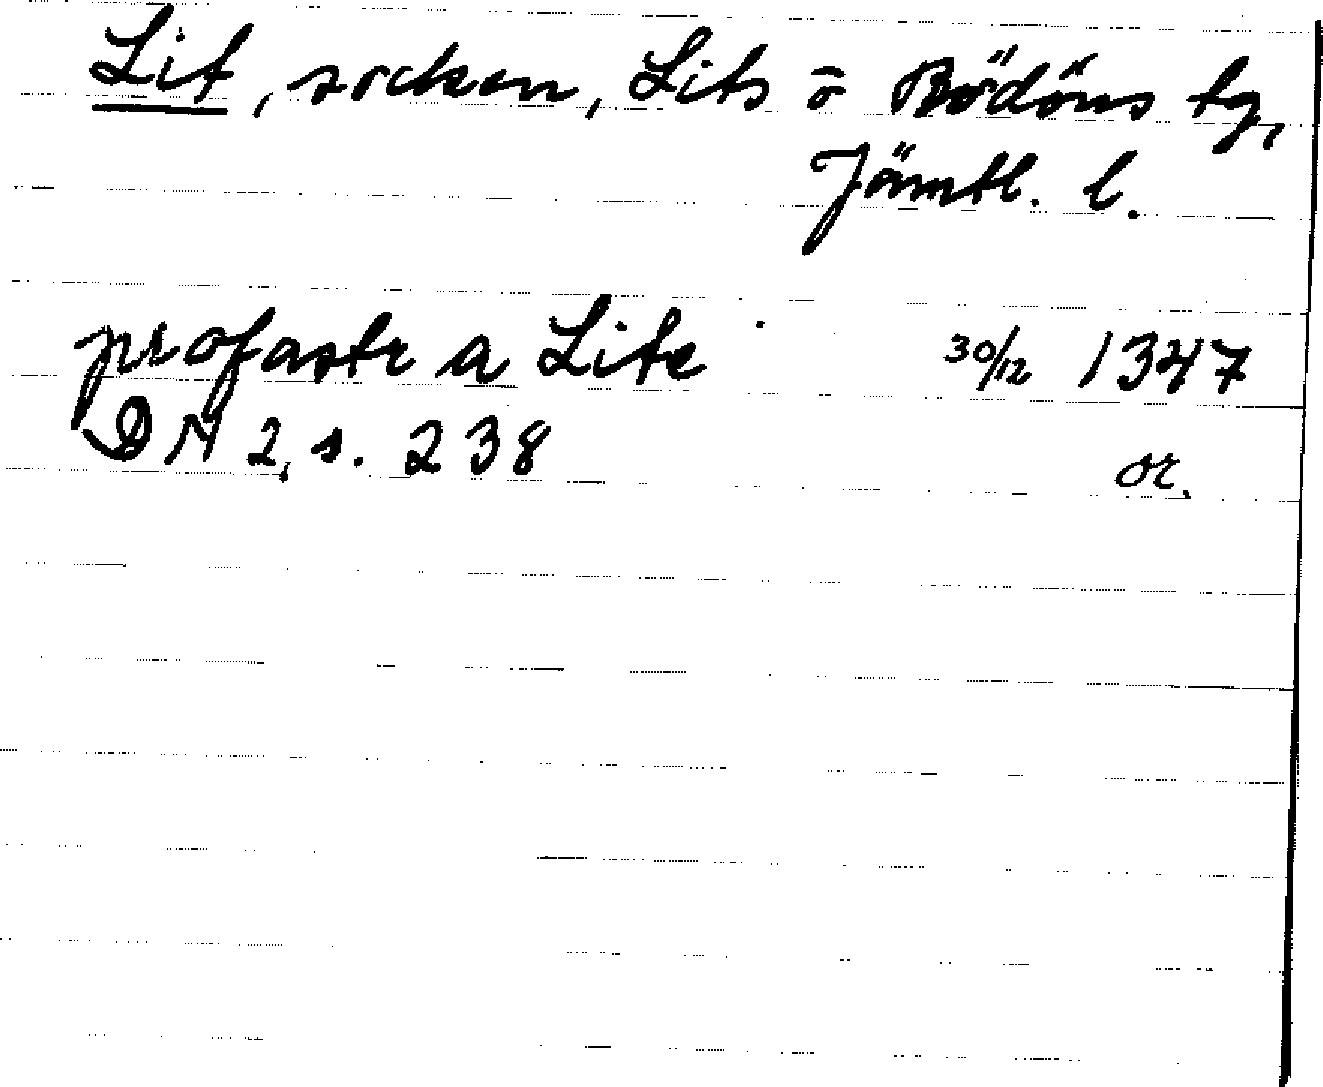 Lit, socken, Lits o Rödöns tg,
Jämtl. l.
profastr a Lite 30/12 1347
DN 2, s. 238 or.